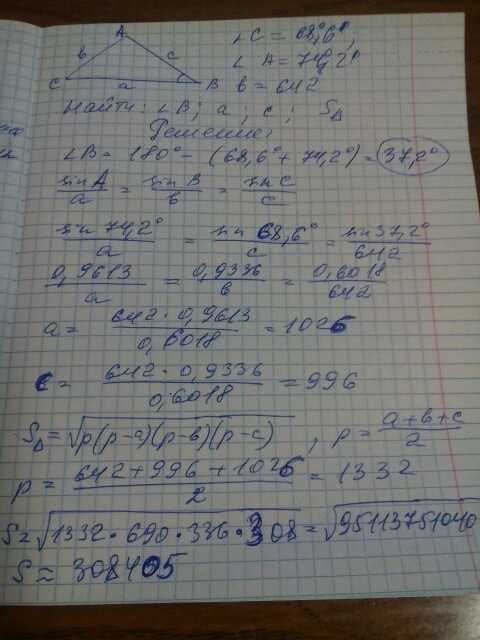 A
в
с
C
a
B
∠C = 68,6°;
∠A = 74,2°
в = 642
Найти: ∠B; a; c; S△
Решение:
∠B = 180° - (68,6° + 74,2°) = 37,2°
sin A / a = sin B / в = sin C / c
sin 74,2° / a = sin 68,6° / c = sin 37,2° / 642
0,9613 / a = 0,9336 / в = 0,6018 / 642
a = 642 · 0,9613 / 0,6018 = 1026
c = 642 · 0,9336 / 0,6018 = 996
S△ = √p(p-a)(p-в)(p-c), p = a+в+c / 2
p = 642 + 996 + 1026 / 2 = 1332
S = √1332 · 690 · 336 · 308 = √95113751040
S ≈ 308405